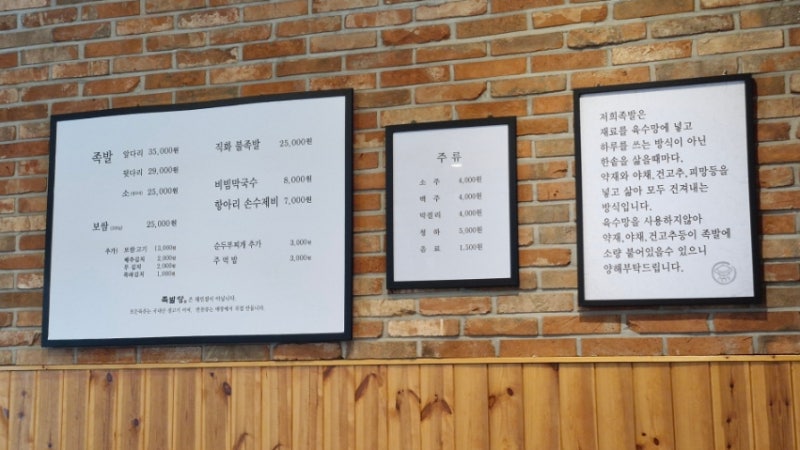 족발 앞다리 35,000원
뒷다리 29,000원
소 25,000원
보쌈 25,000원
추가) 보쌈고기 13,000원
배추김치 2,000원
무 김치 2,000원
직화 불족발 25,000원
비빔막국수 8,000원
항아리 손수제비 7,000원
순두부찌개 추가 3,000원
주먹밥 3,000원
족발당 은 체인점이 아닙니다.
주 류
소 주 4,000원
맥 주 4,000원
막걸리 4,000원
청 하 5,000원
음 료 1,500원
저희족발은
재료를 육수망에 넣고
하루를 쓰는 방식이 아닌
한솥을 삶을때마다.
약재와 야채,건고추,피망등을
넣고 삶아 모두 건져내는
방식입니다.
육수망을 사용하지않아
약재,야채,건고추등이 족발에
소량 붙어있을수 있으니
양해부탁드립니다.